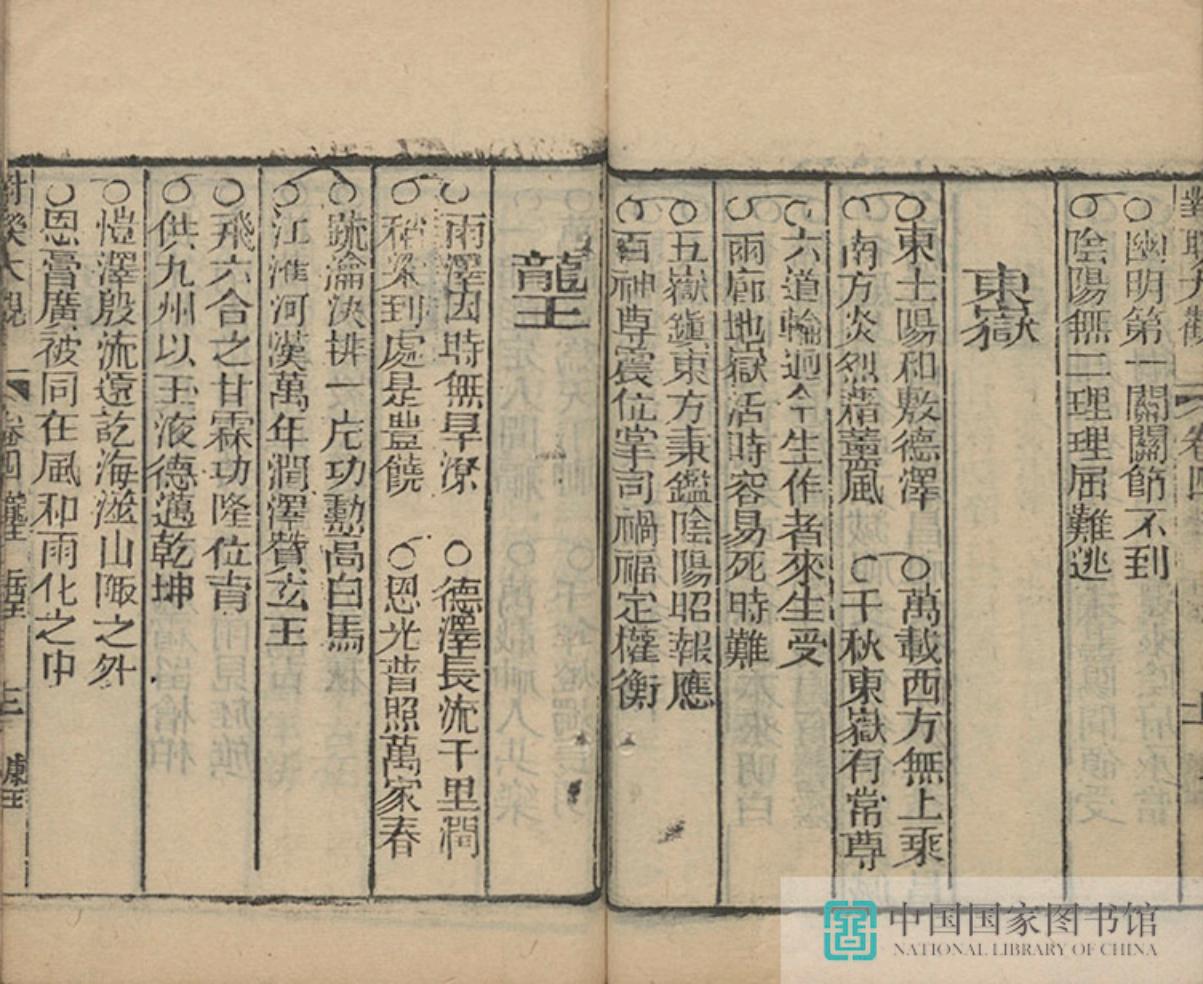 ○幽明第一關關節不到
○陰陽無二理理屈難逃
東嶽
○東土陽和敷德澤 ○萬載西方無上乘
○南方炎烈藉薰風 ○千秋東嶽有常尊
○六道輪迴今生作者來生受
○兩廊地獄活時容易死時難
○五嶽鎮東方秉鑑陰陽昭報應
○百神尊震位掌司禍福定權衡
龍王
○雨澤因時無旱潦 ○德澤長流千里潤
○ 到處是豐饒 ○恩光普照萬家春
○疏瀹決排一片功勳高白馬
○江淮河漢萬年潤澤贊玄王
○飛六合之甘霖功隆位育
○供九州以玉液德邁乾坤
○愷澤殷流遠訖海澨山陬之外
○恩膏廣被同在風和雨化之中
大觀 卷四
中国国家图书馆
NATIONAL LIBRARY OF CHINA